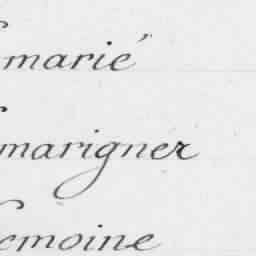 marié
marigner
emoine